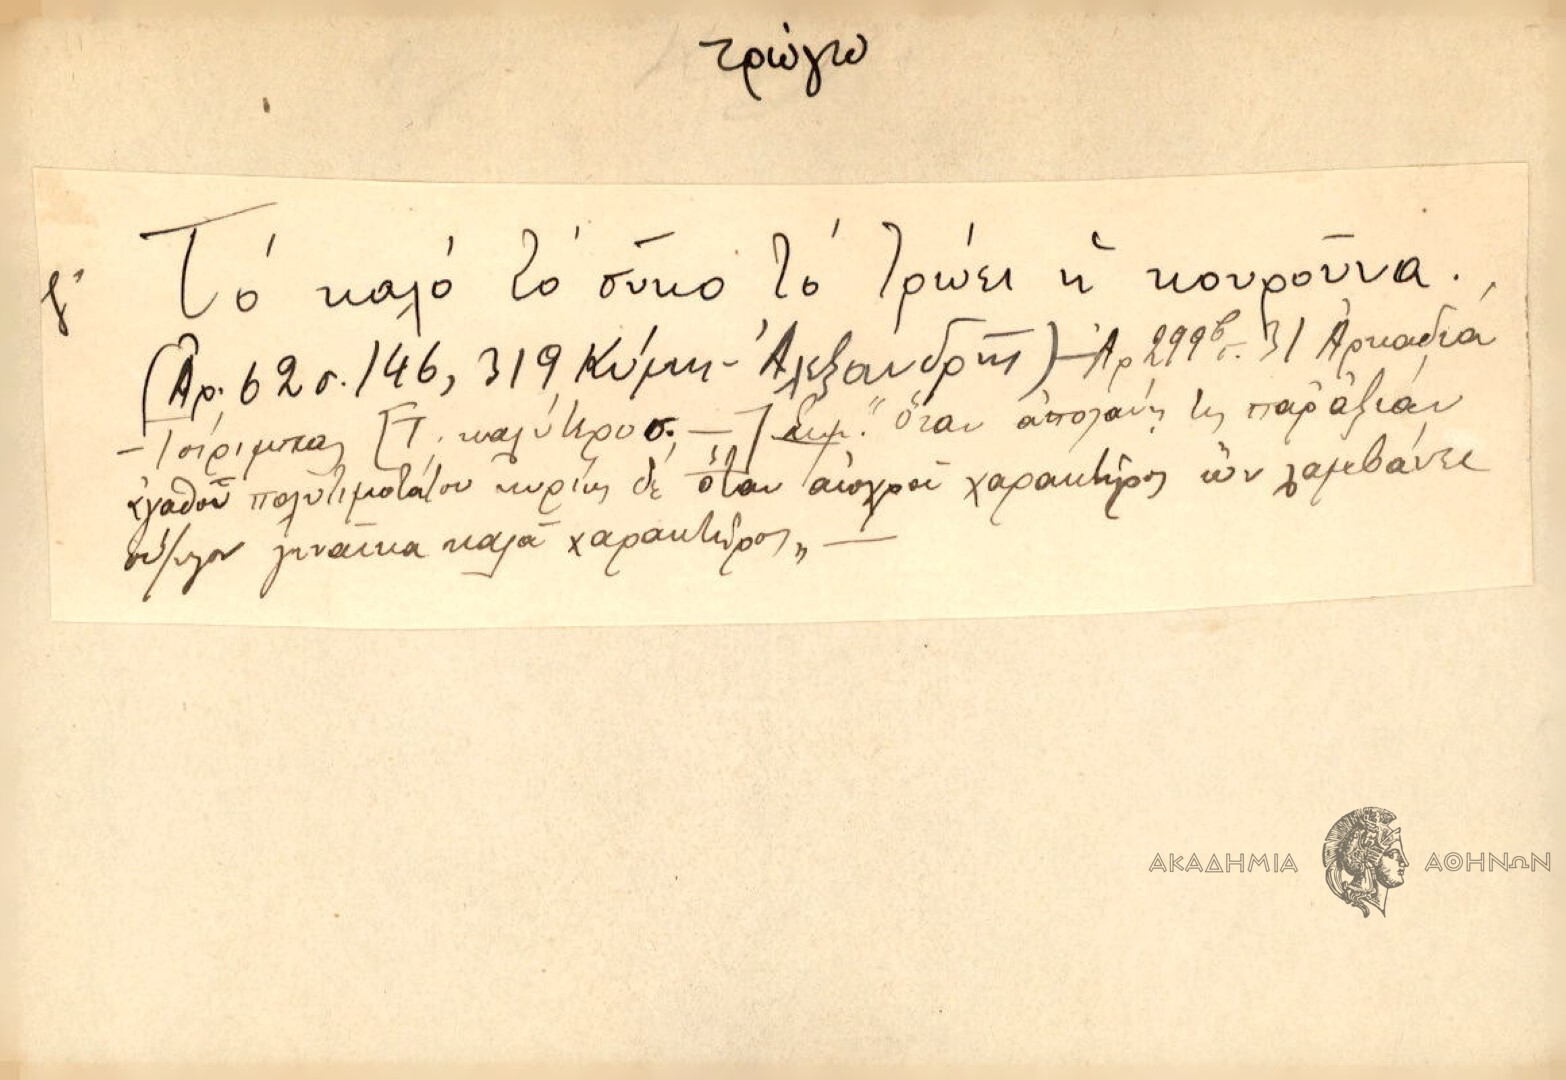 τρώγω
ζ' Τό καλό τό σῦκο τό τρώει ἡ κουροῦνα.
(Ἀρ. 62 σ. 146, 319 Κύμης - Ἀλεξανδρῆς) - Ἀρ 299β σ. 31 Ἀρκαδία
- Τσίριμπας [Τ. καλύτερο σ. —] Σημ. "ὅταν ἀπολαύῃ τις παρ' ἀξίαν
ἀγαθοῦ πολυτιμοτάτου κυρίως δέ ὅταν αἰσχροῦ χαρακτῆρος ὤν λαμβάνει
σύζυγον γυναῖκα καλοῦ χαρακτῆρος„ —
ΑΚΑΔΗΜΙΑ ΑΘΗΝΩΝ